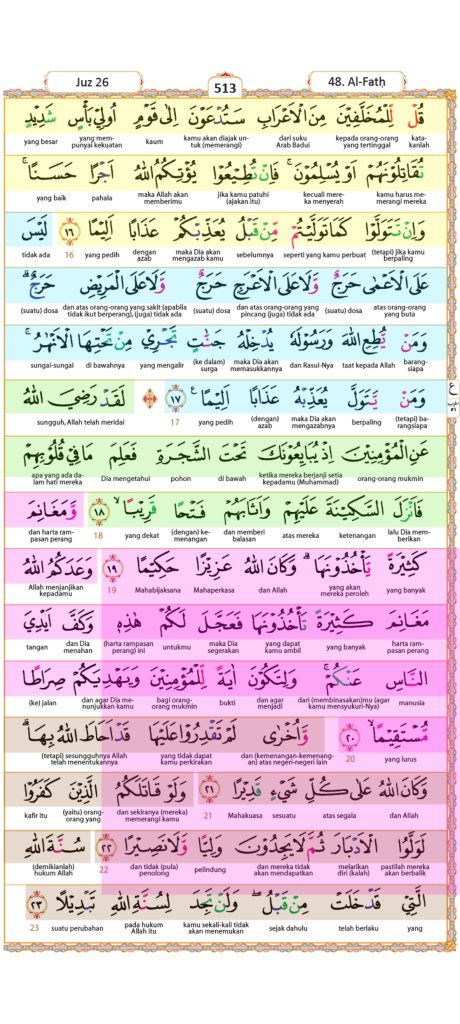 Juz 26
513
48. Al-Fatḥ
قُلْ لِّلْمُخَلَّفِيْنَ مِنَ الْاَعْرَابِ سَتُدْعَوْنَ اِلٰى قَوْمٍ اُولِيْ بَأْسٍ شَدِيْدٍ
kata-kanlah kepada orang-orang yang tertinggal dari suku Arab Badui kamu akan diajak un-tuk (memerangi) kaum yang mem-punyai kekuatan yang besar
تُقَاتِلُوْنَهُمْ اَوْ يُسْلِمُوْنَ ۚ فَاِنْ تُطِيْعُوْا يُؤْتِكُمُ اللّٰهُ اَجْرًا حَسَنًا ۚ
kamu harus me-merangi mereka kecuali mere-ka menyerah jika kamu patuhi (ajakan itu) maka Allah akan memberimu pahala yang baik
وَاِنْ تَتَوَلَّوْا كَمَا تَوَلَّيْتُمْ مِّنْ قَبْلُ يُعَذِّبْكُمْ عَذَابًا اَلِيْمًا ١٦ لَيْسَ
(tetapi) jika kamu berpaling seperti yang kamu perbuat sebelumnya maka Dia akan mengazab kamu dengan azab yang pedih 16 tidak ada
عَلَى الْاَعْمٰى حَرَجٌ وَّلَا عَلَى الْاَعْرَجِ حَرَجٌ وَّلَا عَلَى الْمَرِيْضِ حَرَجٌ ۗ
atas orang-orang yang buta (suatu) dosa dan atas orang-orang yang pincang (juga) tidak ada (suatu) dosa dan atas orang-orang yang sakit (apabila tidak ikut berperang), (juga) tidak ada (suatu) dosa
وَمَنْ يُّطِعِ اللّٰهَ وَرَسُوْلَهٗ يُدْخِلْهُ جَنّٰتٍ تَجْرِيْ مِنْ تَحْتِهَا الْاَنْهٰرُ ۚ
barang-siapa taat kepada Allah dan Rasul-Nya maka Dia akan memasukkannya (ke dalam) surga yang mengalir di bawahnya sungai-sungai
وَمَنْ يَّتَوَلَّ يُعَذِّبْهُ عَذَابًا اَلِيْمًا ࣖ ١٧ لَقَدْ رَضِيَ اللّٰهُ
(tetapi) ba-rangsiapa berpaling maka Dia akan mengazabnya (dengan) azab yang pedih 17 sungguh, Allah telah meridai
عَنِ الْمُؤْمِنِيْنَ اِذْ يُبَايِعُوْنَكَ تَحْتَ الشَّجَرَةِ فَعَلِمَ مَا فِيْ قُلُوْبِهِمْ
orang-orang mukmin ketika mereka berjanji setia kepadamu (Muhammad) di bawah pohon Dia mengetahui apa yang ada da-lam hati mereka
فَاَنْزَلَ السَّكِيْنَةَ عَلَيْهِمْ وَاَثَابَهُمْ فَتْحًا قَرِيْبًا ۙ ١٨ وَّمَغَانِمَ
lalu Dia mem-berikan ketenangan atas mereka dan memberi balasan (dengan) ke-menangan yang dekat 18 dan harta ram-pasan perang
كَثِيْرَةً يَّأْخُذُوْنَهَا ۗ وَكَانَ اللّٰهُ عَزِيْزًا حَكِيْمًا ١٩ وَعَدَكُمُ اللّٰهُ
yang banyak yang akan mereka peroleh dan Allah Mahaperkasa Mahabijaksana 19 Allah menjanjikan kepadamu
مَغَانِمَ كَثِيْرَةً تَأْخُذُوْنَهَا فَعَجَّلَ لَكُمْ هٰذِهٖ وَكَفَّ اَيْدِيَ
harta ram-pasan perang yang banyak yang dapat kamu ambil maka Dia segerakan untukmu (harta rampasan perang) ini dan Dia menahan tangan
النَّاسِ عَنْكُمْ ۚ وَلِتَكُوْنَ اٰيَةً لِّلْمُؤْمِنِيْنَ وَيَهْدِيَكُمْ صِرَاطًا
manusia dari (membinasakan)mu (agar kamu mensyukuri-Nya) dan agar menjadi bukti bagi orang-orang mukmin dan agar Dia me-nunjukkan kamu (ke) jalan
مُّسْتَقِيْمًا ۙ ٢٠ وَّاُخْرٰى لَمْ تَقْدِرُوْا عَلَيْهَا قَدْ اَحَاطَ اللّٰهُ بِهَا ۗ
yang lurus 20 dan (kemenangan-kemenang-an) atas negeri-negeri lain yang tidak dapat kamu perkirakan (tetapi) sesungguhnya Allah telah menentukannya
وَكَانَ اللّٰهُ عَلٰى كُلِّ شَيْءٍ قَدِيْرًا ٢١ وَلَوْ قَاتَلَكُمُ الَّذِيْنَ كَفَرُوْا
dan Allah atas segala sesuatu Mahakuasa 21 dan sekiranya (mereka) memerangi kamu (yaitu) orang-orang yang kafir itu
لَوَلَّوُا الْاَدْبَارَ ثُمَّ لَا يَجِدُوْنَ وَلِيًّا وَّلَا نَصِيْرًا ٢٢ سُنَّةَ اللّٰهِ
pastilah mereka akan berbalik melarikan diri (kalah) dan mereka tidak akan mendapatkan pelindung dan tidak (pula) penolong 22 (demikianlah) hukum Allah
الَّتِيْ قَدْ خَلَتْ مِنْ قَبْلُ ۖ وَلَنْ تَجِدَ لِسُنَّةِ اللّٰهِ تَبْدِيْلًا ٢٣
yang telah berlaku sejak dahulu kamu sekali-kali tidak akan menemukan pada hukum Allah itu suatu perubahan 23